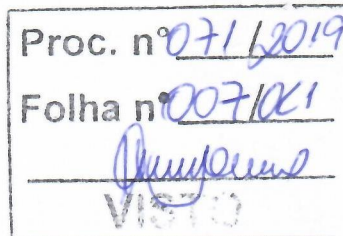 Proc. nº 071/2019
Folha nº 007/
VISTO